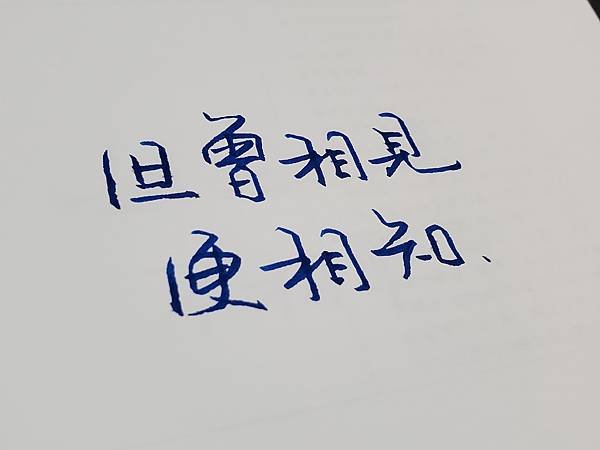 但曾相見
便相知、